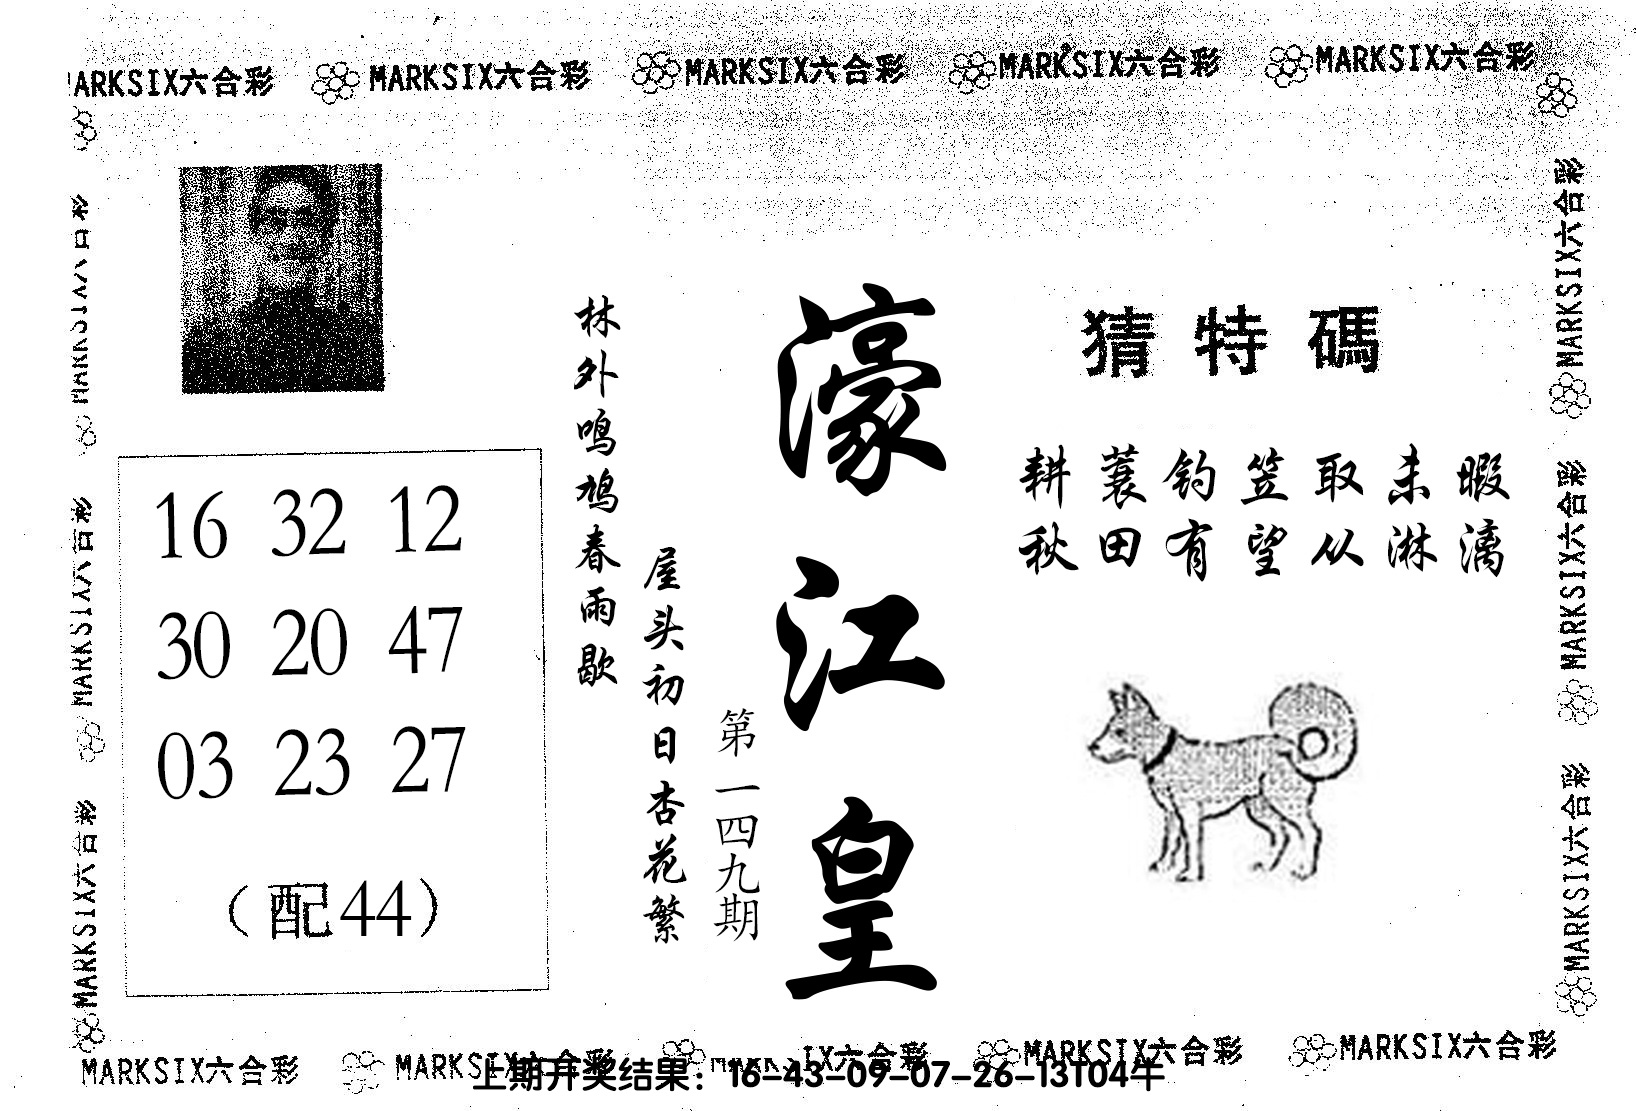 MARKSIX六合彩 MARKSIX六合彩 MARKSIX六合彩 MARKSIX六合彩
MARKSIX六合彩
MARKSIX六合彩
MARKSIX六合彩
MARKSIX六合彩
MARKSIX六合彩
16 32 12
30 20 47
03 23 27
（配44）
林外鸣鸠春雨歇
屋头初日杏花繁
第一四九期
濠江皇
猜特碼
耕蓑钓笠取未暇
秋田有望从淋漓
MARKSIX六合彩 MARKSIX六合彩 MARKSIX六合彩 MARKSIX六合彩
上期开奖结果：16-43-09-07-26-13T04牛